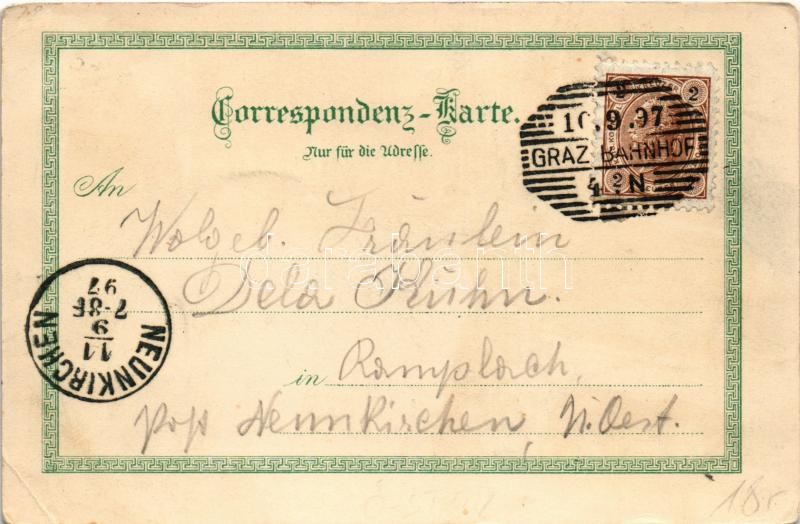 Correspondenz-Karte.
Nur für die Adresse.
2 2
10.9.97
GRAZ BAHNHOF
4. N
An
Wolgeb. Fräulein
Dela Kuhn.
in Ramplach
Post Neunkirchen, N. Oest.
NEUNKIRCHEN
11
9
7-8F
97
darabanth